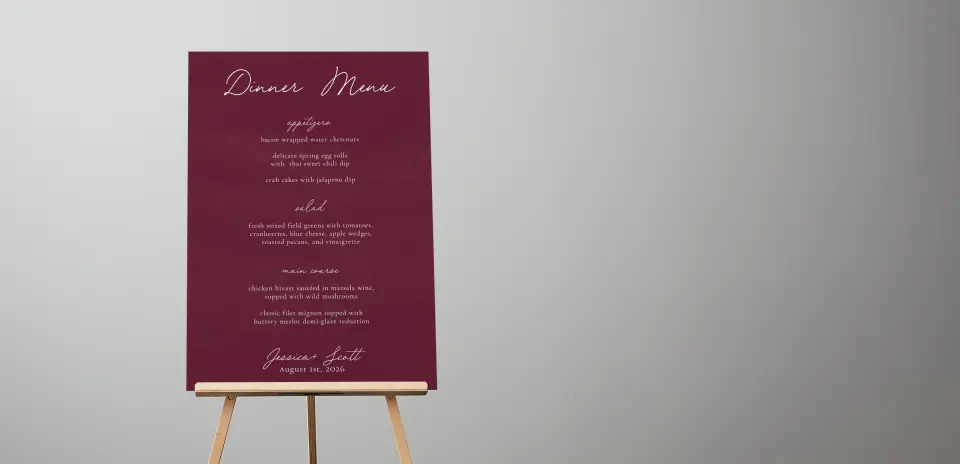 Dinner Menu
appetizers
bacon wrapped water chestnuts
delicate spring egg rolls
with thai sweet chili dip
crab cakes with jalapeno dip
salad
fresh mixed field greens with tomatoes,
cranberries, blue cheese, apple wedges,
toasted pecans, and vinaigrette
main course
chicken breast sautéed in marsala wine,
topped with wild mushrooms
classic filet mignon topped with
buttery merlot demi-glaze reduction
Jessica+ Scott
August 1st, 2026